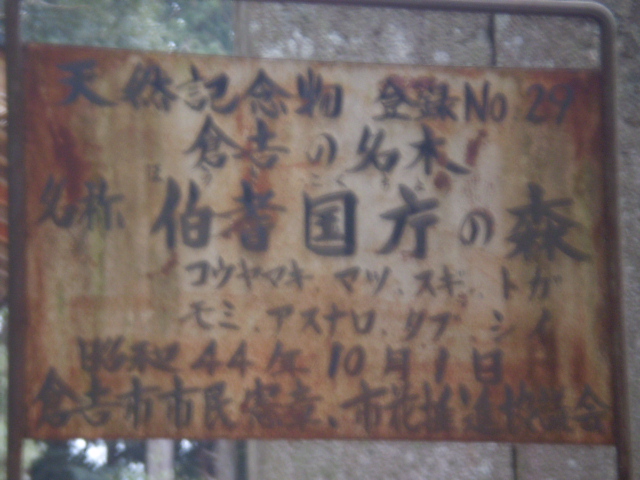 天然記念物 登録No.29
倉吉の名木
名称 伯耆国庁の森
コウヤマキ、マツ、スギ、トガ
モミ、アスナロ、タブ、シイ
昭和44年10月1日
倉吉市市民憲章、市花推進協議会